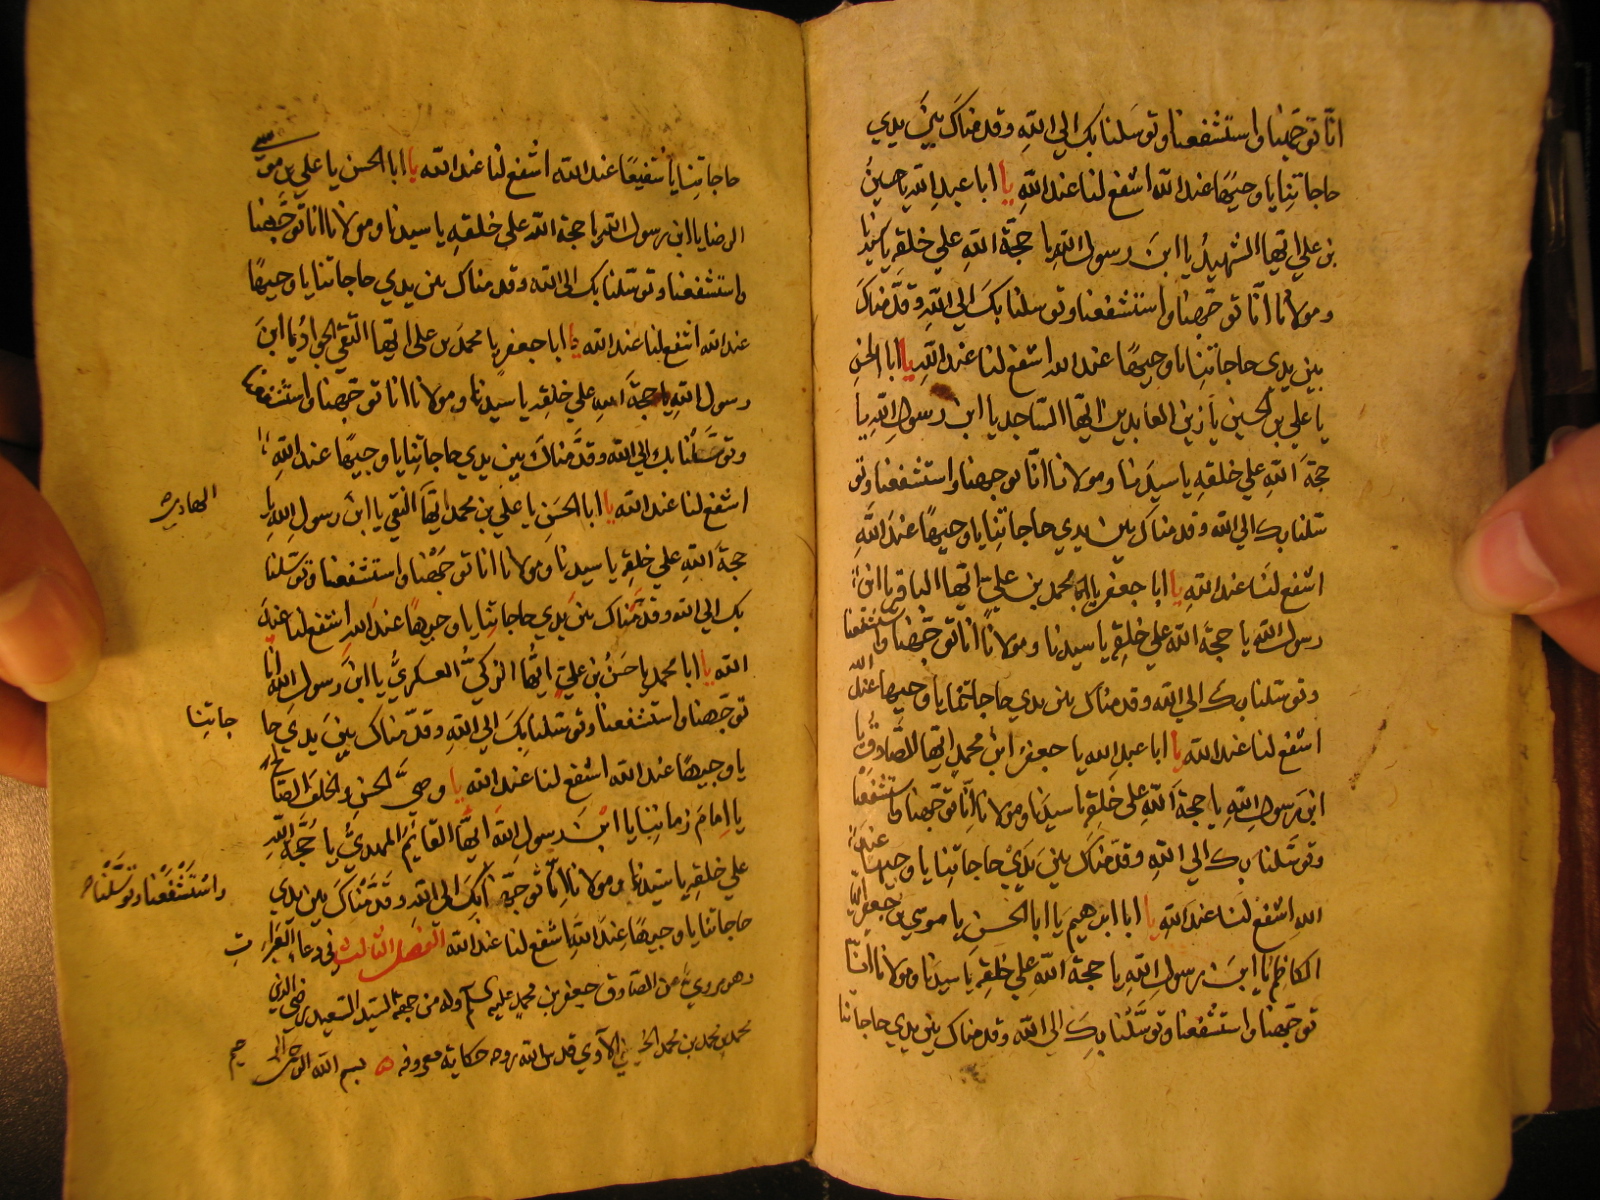 انّا توجّهنا واستشفعنا وتوسلنا بك الي الله وقدمناك بين يدي
حاجاتنا يا وجيها عند الله اشفع لنا عند الله يا ابا عبد الله يا حسين
بن علي ايها الشهيد يا ابن رسول الله يا حجة الله علي خلقه يا سيدنا
ومولانا انّا توجّهنا واستشفعنا وتوسلنا بك الي الله وقدّمناك
بين يدي حاجاتنا يا وجيها عند الله اشفع لنا عند الله يا ابا الحسن
يا علي بن الحسين يا زين العابدين ايها الساجد يا ابن رسول الله يا
حجة الله علي خلقه يا سيدنا ومولانا انّا توجهنا واستشفعنا وتو
سلنا بك الي الله وقدمناك بين يدي حاجاتنا يا وجيها عند الله
اشفع لنا عند الله يا ابا جعفر يا محمد بن علي ايها الباقر يا ابن
رسول الله يا حجة الله علي خلقه يا سيدنا ومولانا انا توجّهنا واستشفعنا
وتوسلنا بك الي الله وقدمناك بين يدي حاجاتنا يا وجيها عند الله
اشفع لنا عند الله يا ابا عبد الله يا جعفر ابن محمد ايها الصّادق يا
ابن رسول الله يا حجة الله علي خلقه يا سيدنا ومولانا انّا توجّهنا واستشفعنا
وتوسّلنا بك الي الله وقدّمناك بين يدي حاجاتنا يا وجيها عند
الله اشفع لنا عند الله يا ابا ابرهيم يا ابا الحسن يا موسي بن جعفر ايها
الكاظم يا ابن رسول الله يا حجة الله علي خلقه يا سيدنا ومولانا انّا
توجّهنا واستشفعنا وتوسّلنا بك الي الله وقدمناك بين يدي حاجاتنا
حاجاتنا يا شفيعا عند الله اشفع لنا عند الله يا ابا الحسن يا علي بن موسي
الرضا يا ابن رسول الله يا حجة الله علي خلقه يا سيدنا ومولانا انا توجّهنا
واستشفعنا وتوسّلنا بك الي الله وقدمناك بين يدي حاجاتنا يا وجيها
عند الله اشفع لنا عند الله يا ابا جعفر يا محمد بن علي ايها التقي الجواد يا ابن
رسول الله يا حجة الله علي خلقه يا سيدنا ومولانا انا توجّهنا واستشفعنا
وتوسّلنا بك الي الله وقدّمناك بين يدي حاجاتنا يا وجيها عند الله
اشفع لنا عند الله يا ابا الحسن يا علي بن محمد ايها النقي يا ابن رسول الله يا
الهادي
حجة الله علي خلقه يا سيدنا ومولانا انا توجّهنا واستشفعنا وتوسّلنا
بك الي الله وقدّمناك بين يدي حاجاتنا يا وجيها عند الله اشفع لنا عند
الله يا ابا محمد يا حسن بن علي ايّها الزكيّ العسكريّ يا ابن رسول الله انا
توجّهنا واستشفعنا وتوسّلنا بك الي الله وقدّمناك بين يدي حا
جاتنا
يا وجيها عند الله اشفع لنا عند الله يا وصيّ الحسن والخلف الصالح
يا امام زماننا يا ابن رسول الله ايّها القايم المهديّ يا حجّة الله
علي خلقه يا سيدنا ومولانا انّا توجّهنا بك الي الله وقدّمناك بين يدي
واستشفعنا وتوسّلنا
حاجاتنا يا وجيها عند الله اشفع لنا عند الله الفصل الثالث في دعا العبرات
وهو مروي عن الصّادق جعفر بن محمد عليه السلم وله من جهة السيد السعيد رضي الدين
محمد بن محمد بن محمد الحسيني الآوي قدس الله روحه حكاية معروفه بسم الله الرحمن الرحيم